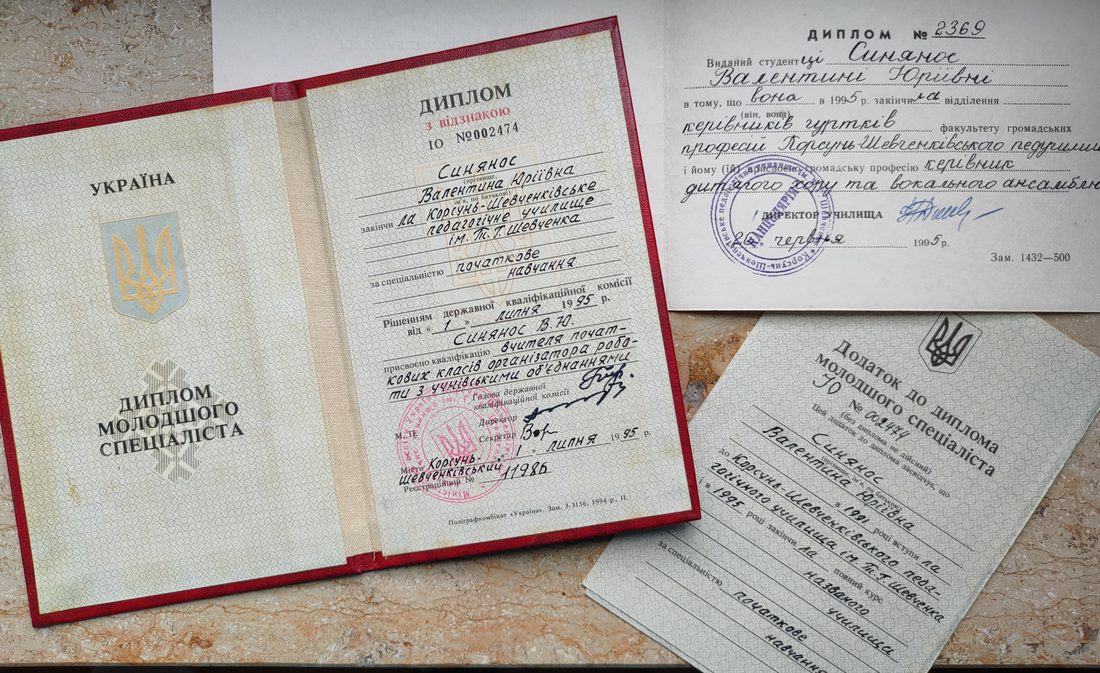 УКРАЇНА
ДИПЛОМ
МОЛОДШОГО
СПЕЦІАЛІСТА
ДИПЛОМ
з відзнакою
ІО №002474
Синянос
(прізвище,
Валентина Юріївна
ім'я, по батькові)
закінчи ла Корсунь-Шевченківське
педагогічне училище
ім. Т.Г. Шевченка
за спеціальністю початкове
навчання
Рішенням державної кваліфікаційної комісії
від « 1 » липня 1995 р.
Синянос В.Ю.
присвоєно кваліфікацію вчителя почат-
кових класів організатора робо-
ти з учнівськими об'єднаннями
Голова державної
кваліфікаційної комісії
Директор
М. П.
Секретар
1 липня 1995 р.
Місто Корсунь-
Шевченківський
Реєстраційний № 11986
Поліграфкомбінат «Україна». Зам. 3-3156, 1994 р., II.
ДИПЛОМ № 2369
Виданий студентці Синянос
Валентині Юріївні
в тому, що вона в 1995 р. закінчила відділення
(він, вона)
керівників гуртків факультету громадських
професій Корсунь-Шевченківського педучилища
і йому (їй) присвоєно громадську професію керівник
дитячого хору та вокального ансамблю
ДИРЕКТОР УЧИЛИЩА
КАНЦЕЛЯРІЯ
червня 1995 р.
Зам. 1432—500
Додаток до диплома
молодшого спеціаліста
ІО № 002474
(без диплома не дійсний)
Цей додаток до диплома засвідчує, що
Синянос
Валентина Юріївна
в 1991 році вступи ла
до Корсунь-Шевченківського педа-
гогічного училища ім. Т.Г. Шевченка
і в 1995 році закінчи ла повний курс
названого
училища
за спеціальністю початкове
навчання